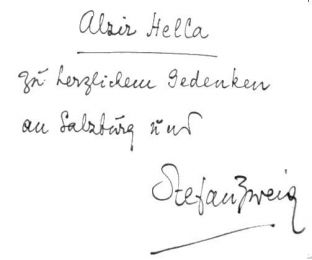 Alzir Hella
zu herzlichem Gedenken
an Salzburg und
Stefan Zweig